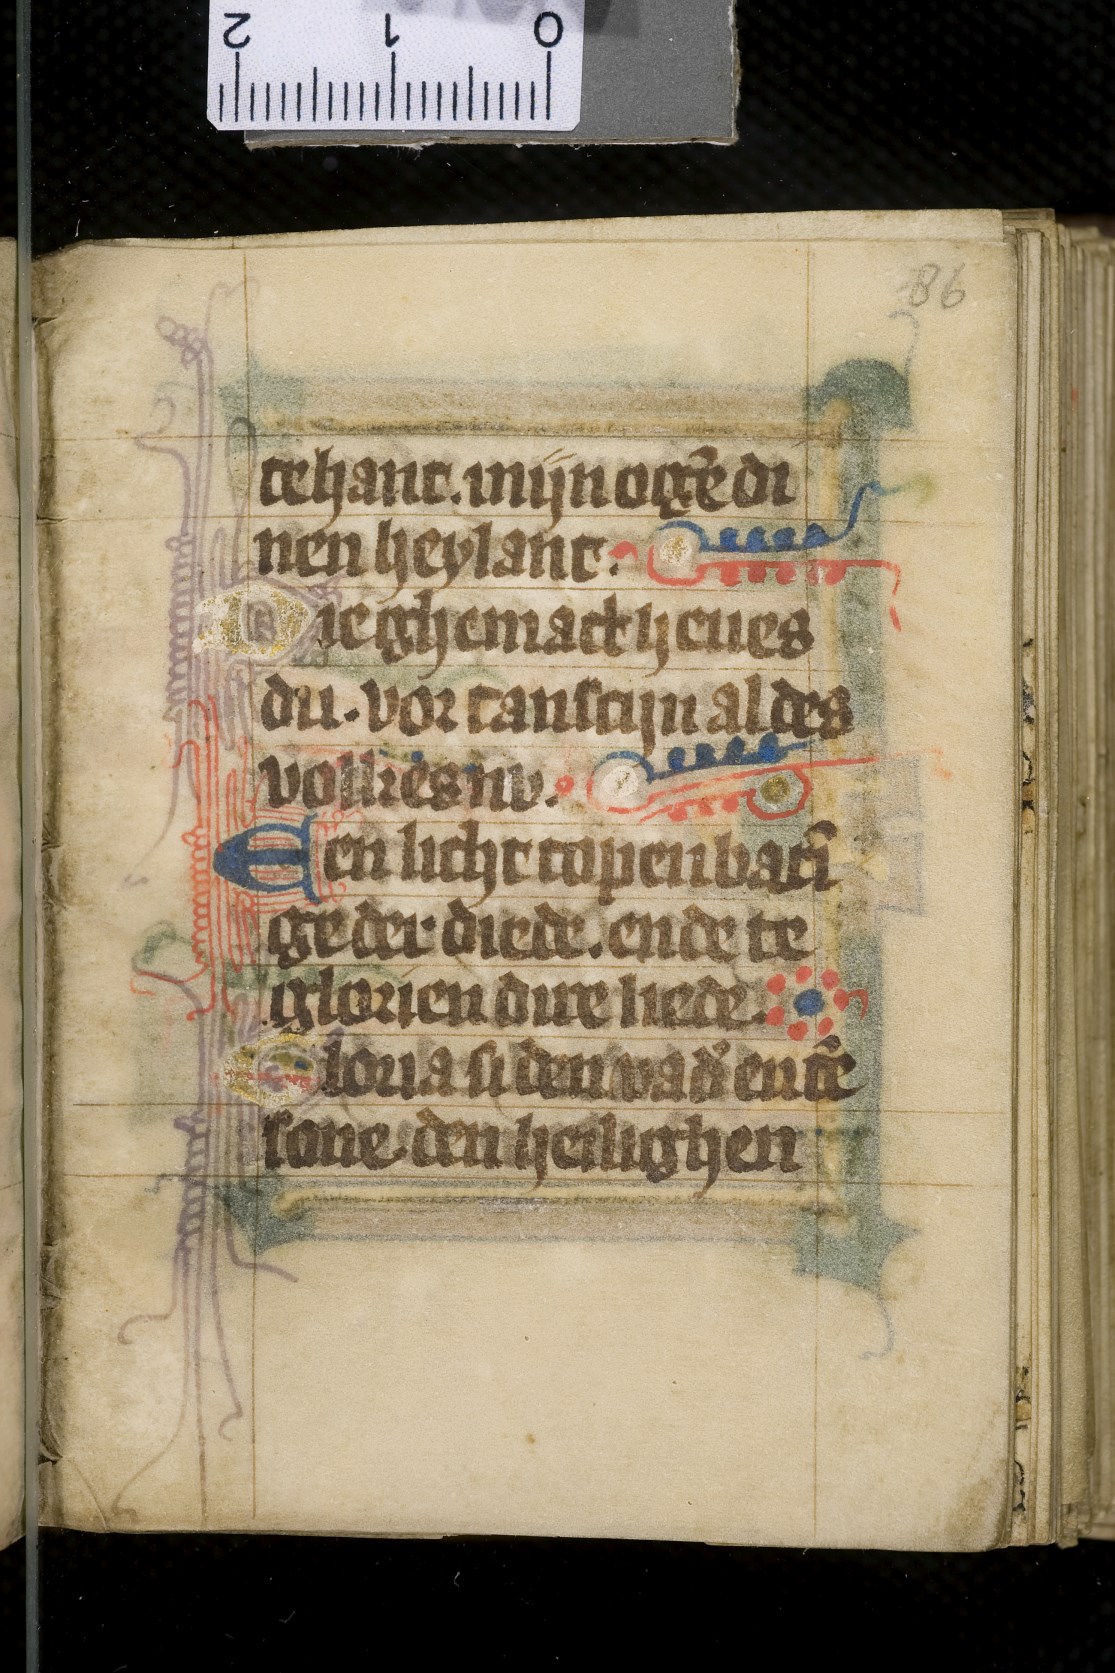 2 1 0
86
tehant. mijn oghẽ di
nen heylant.
Die ghemact heues
du. vor tanscijn al des
volkes nv.
Een licht topenbarĩ
ge der diede. ende te
glorien dire liede.
Gloria si den vadʼ en̄ tẽ
sone den heilighen